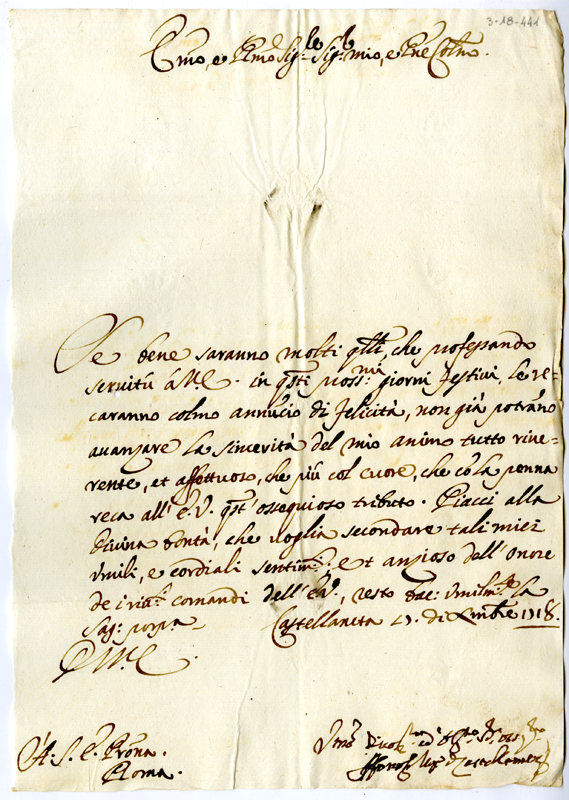 3-18-441
Emo, e Rmo Sig.re Sig.re mio, e Pne Colmo.
Se bene saranno molti qlli, che professando
servitù à VE. in qsti pross.mi giorni festivi, le re=
caranno colmo annucio di felicità, non già potrano
avanzare la sincerità del mio animo tutto rive=
rente, et affettuoso, che più col cuore, che cò la penna
reca all' E.V. qst' ossequioso tributo. Piacci alla
Divina bontà, che voglia secondare tali miei
vmili, e cordiali sentim.ti, et anzioso dell' onore
de comandi dell' resto vmilm.te la
Sag: porpa
Castellaneta di Xmbre 1718.
Roma.